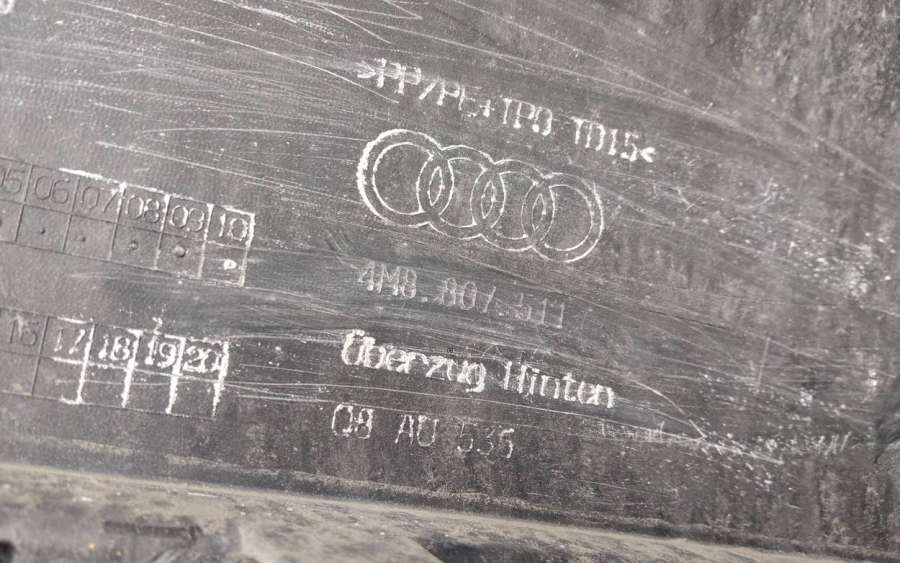 >PP/PE+TPO TD15<
05 06 07 08 09 10
4M8.807.511
16 17 18 19 20
Überzug Hinten
Q8 AU 536